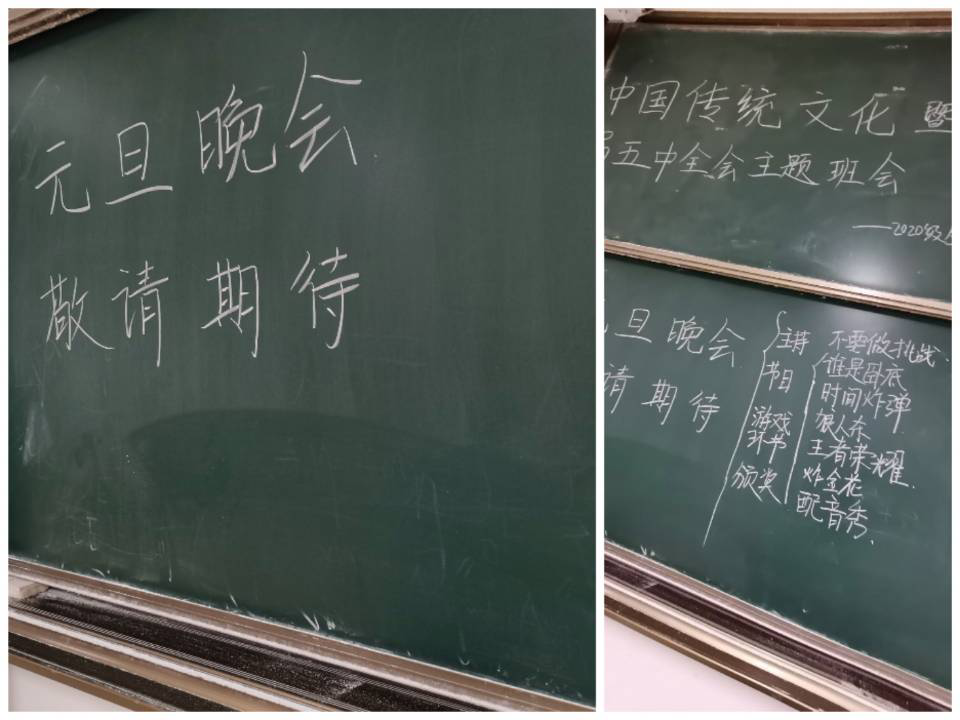 元旦晚会
敬请期待
中国传统文化暨
五中全会主题班会
——2020级
旦晚会
请期待
主持
节目
游戏
环节
颁奖
不要做挑战
谁是卧底
时间炸弹
狼人杀
王者荣耀
炸金花
配音秀